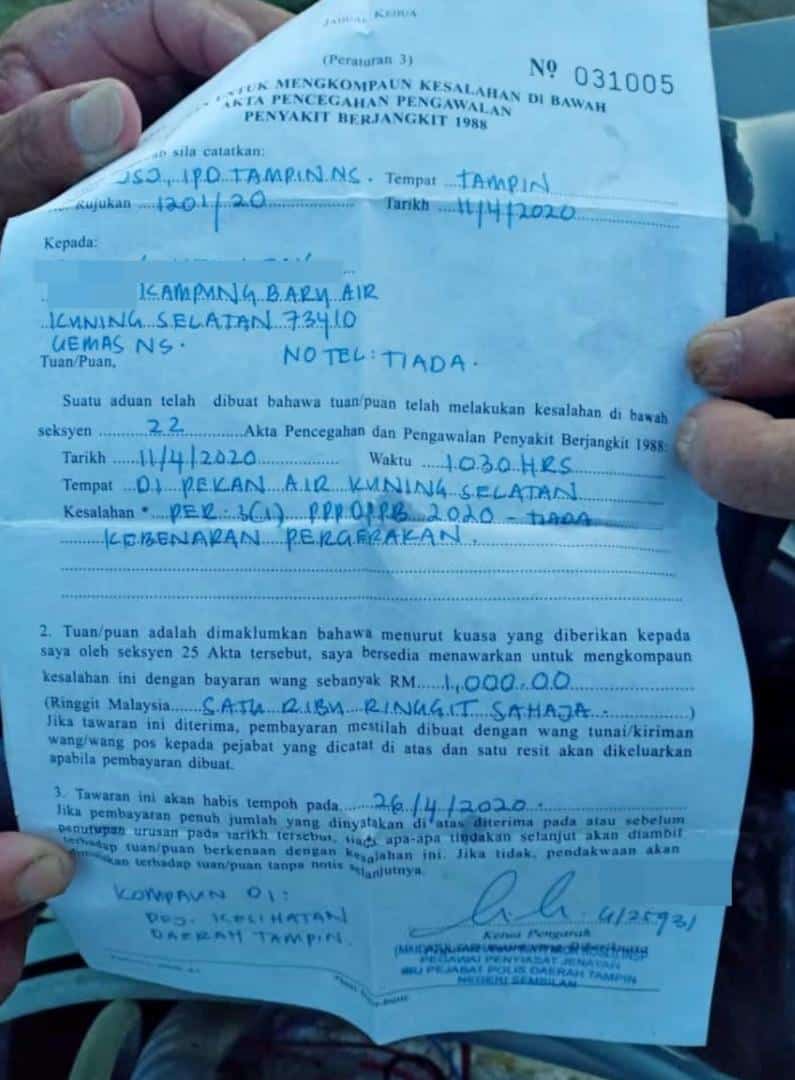 JADUAL KEDUA
(Peraturan 3)
Nº 031005
UNTUK MENGKOMPAUN KESALAHAN DI BAWAH
AKTA PENCEGAHAN PENGAWALAN
PENYAKIT BERJANGKIT 1988
sila catatkan:
IPD TAMPIN NS. Tempat TAMPIN
Rujukan 1201/20 Tarikh 11/4/2020
Kepada:
KAMPUNG BARU AIR
KUNING SELATAN 73410
GEMAS NS.
Tuan/Puan, NO TEL: TIADA.
Suatu aduan telah dibuat bahawa tuan/puan telah melakukan kesalahan di bawah
seksyen 22 Akta Pencegahan dan Pengawalan Penyakit Berjangkit 1988:
Tarikh 11/4/2020 Waktu 1030 HRS
Tempat DI PEKAN AIR KUNING SELATAN
Kesalahan * PER: 3(1) PPPDPPB 2020 - TIADA
KEBENARAN PERGERAKAN.
2. Tuan/puan adalah dimaklumkan bahawa menurut kuasa yang diberikan kepada
saya oleh seksyen 25 Akta tersebut, saya bersedia menawarkan untuk mengkompaun
kesalahan ini dengan bayaran wang sebanyak RM 1,000.00
(Ringgit Malaysia SATU RIBU RINGGIT SAHAJA.)
Jika tawaran ini diterima, pembayaran mestilah dibuat dengan wang tunai/kiriman
wang/wang pos kepada pejabat yang dicatat di atas dan satu resit akan dikeluarkan
apabila pembayaran dibuat.
3. Tawaran ini akan habis tempoh pada 26/4/2020.
Jika pembayaran penuh jumlah yang dinyatakan di atas diterima pada atau sebelum
penutupan urusan pada tarikh tersebut, tiada apa-apa tindakan selanjut akan diambil
terhadap tuan/puan berkenaan dengan kesalahan ini. Jika tidak, pendakwaan akan
dimulakan terhadap tuan/puan tanpa notis selanjutnya.
KOMPAUN DI:
PEJ. KESIHATAN
DAERAH TAMPIN.
G/25931
Ketua Pengarah
PEGAWAI PENYIASAT JENAYAH
IBU PEJABAT POLIS DAERAH TAMPIN
NEGERI SEMBILAN